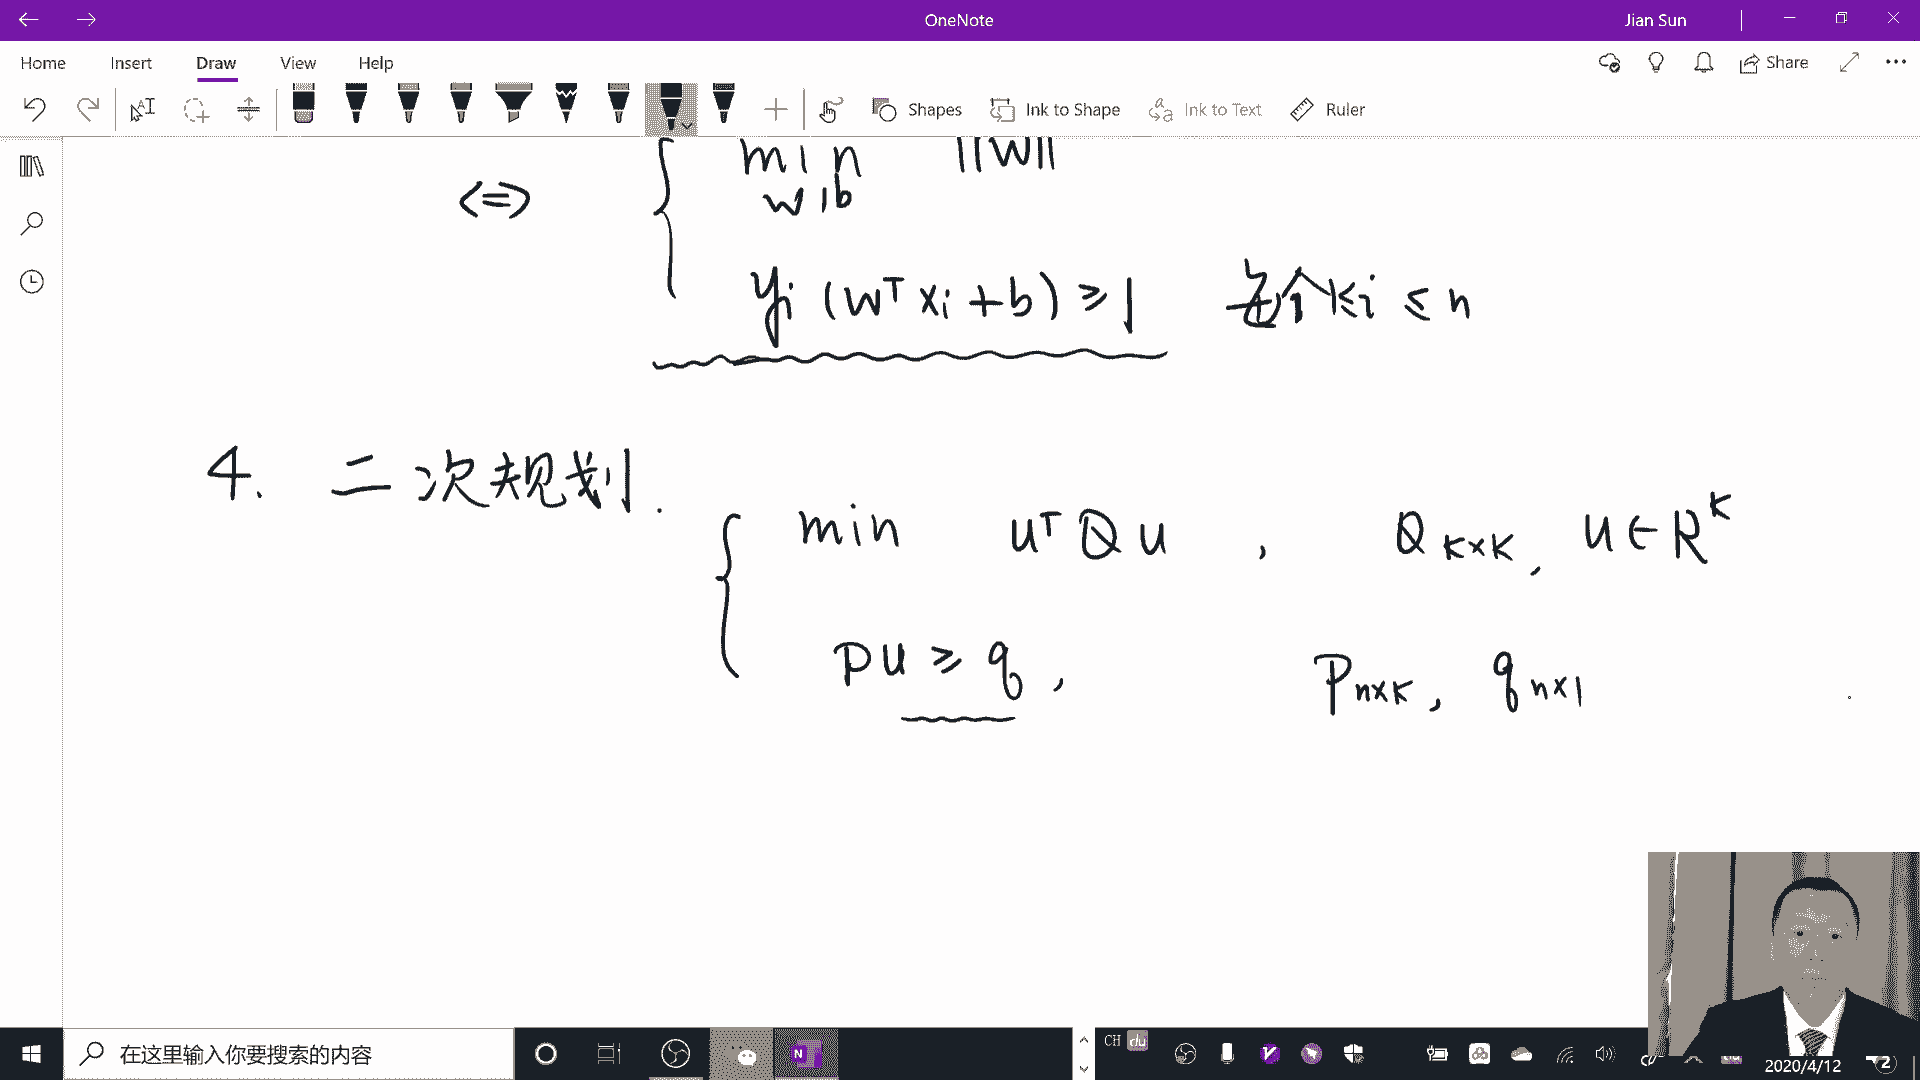 OneNote
Jian Sun
Home Insert Draw View Help
Share
Shapes Ink to Shape Ink to Text Ruler
min ||W||
w, b
<=>
yi (wᵀ xi + b) ≥ 1 每个 1≤i ≤ n
4. 二次规划.
min uᵀ Q u , Q K×K, u ∈ R^K
Pu ≥ q, P n×K, q n×1
在这里输入你要搜索的内容
N
CH du
2020/4/12
2